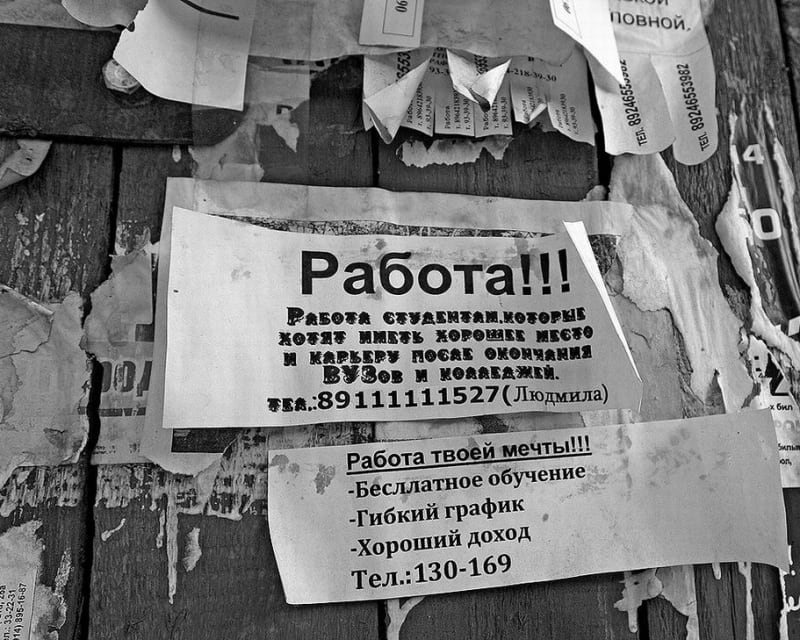 повной,
тел. 89246553982
тел. 89246553982
Работа!!!
Работа студентам,которые
хотят иметь хорошее место
и карьеру после окончания
ВУЗов и колледжей.
тел.:89111111527(Людмила)
Работа твоей мечты!!!
-Бесллатное обучение
-Гибкий график
-Хороший доход
Тел.:130-169